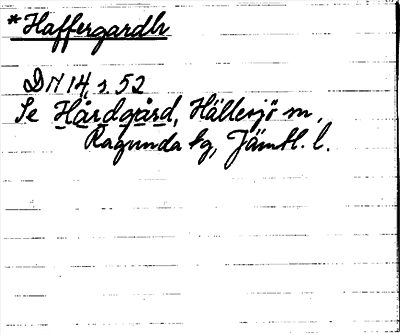 *Haffergardhr
DN 14 s 52
Se Hårdgård, Hällesjö sn,
Ragunda tg, Jämtl. l.